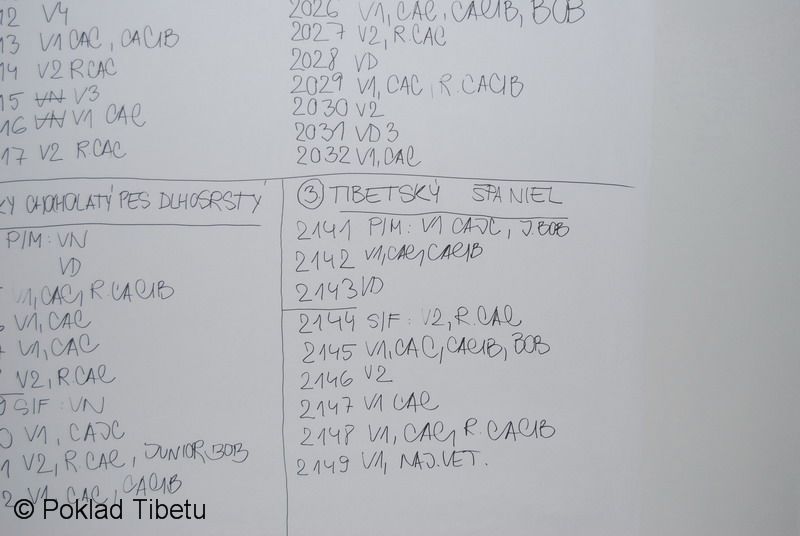 12 V4
13 V1 CAC, CACIB
14 V2 R.CAC
15 VN V3
16 VN V1 CAC
17 V2 R.CAC
2026 V1, CAC, CACIB, BOB
2027 V2, R.CAC
2028 VD
2029 V1, CAC, R.CACIB
2030 V2
2031 VD3
2032 V1, CAC
KY CHOCHOLATÝ PES DLHOSRSTÝ
P/M: VN
VD
V1, CAC, R.CACIB
V1, CAC
V1, CAC
V2, R.CAC
9 S/F: VN
0 V1, CAJC
1 V2, R.CAC, JUNIOR, BOB
2 V1, CAC, CACIB
3 TIBETSKÝ ŠPANIEL
2141 P/M: V1 CAJC, J.BOB
2142 V1, CAC, CACIB
2143 VD
2144 S/F: V2, R.CAC
2145 V1, CAC, CACIB, BOB
2146 V2
2147 V1 CAC
2148 V1, CAC, R.CACIB
2149 V1, NAJ.VET.
© Poklad Tibetu